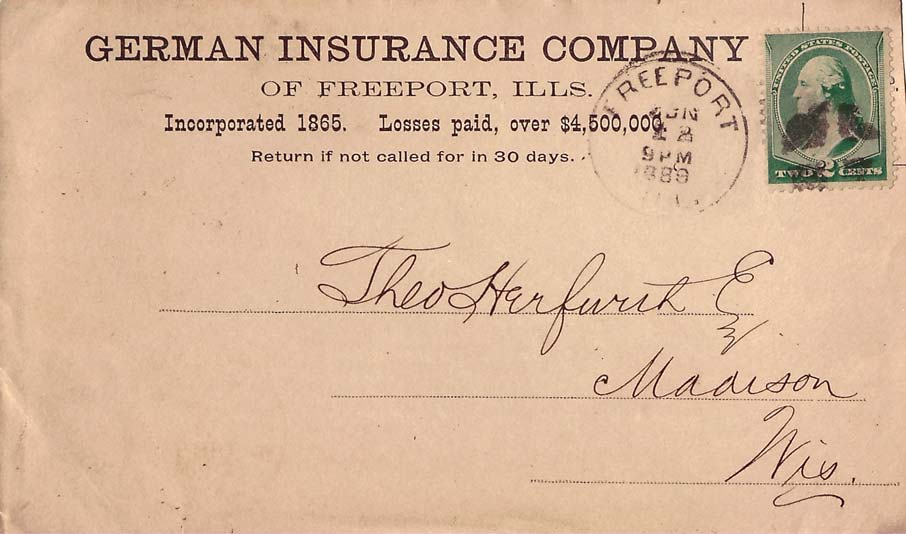 GERMAN INSURANCE COMPANY
OF FREEPORT, ILLS.
Incorporated 1865. Losses paid, over $4,500,000.
Return if not called for in 30 days.
FREEPORT
9PM
ILL.
UNITED STATES POSTAGE
TWO 2 CENTS
Theo Herfurth E
Madison
Wis.